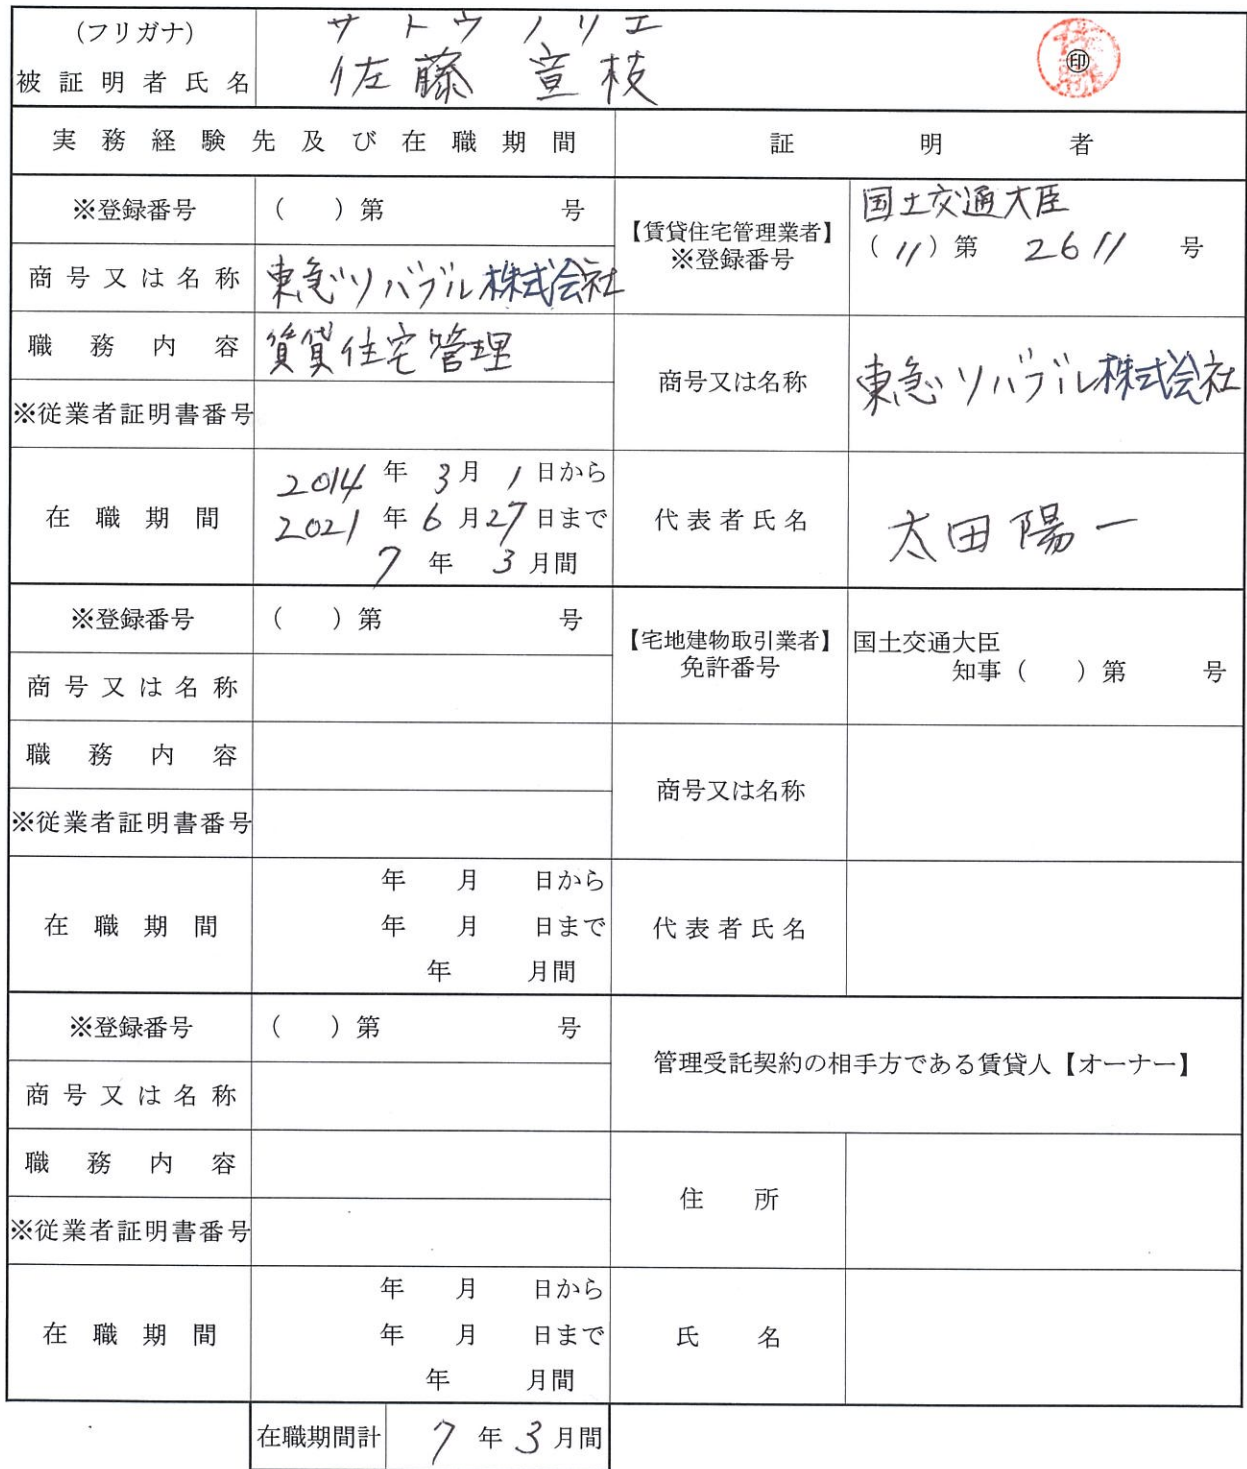 (フリガナ) サトウノリエ
被証明者氏名 佐藤 宣枝 ㊞
実務経験先及び在職期間 証明者
※登録番号 ( )第 号
【賃貸住宅管理業者】※登録番号 国土交通大臣
(11)第 2611 号
商号又は名称 東急リバブル株式会社
職務内容 賃貸住宅管理
商号又は名称 東急リバブル株式会社
※従業者証明書番号
在職期間 2014年3月1日から
2021年6月27日まで
7年3月間
代表者氏名 太田陽一
※登録番号 ( )第 号
【宅地建物取引業者】免許番号 国土交通大臣
知事( )第 号
商号又は名称
職務内容
商号又は名称
※従業者証明書番号
在職期間 年 月 日から
年 月 日まで
年 月間
代表者氏名
※登録番号 ( )第 号
管理受託契約の相手方である賃貸人【オーナー】
商号又は名称
職務内容
住所
※従業者証明書番号
在職期間 年 月 日から
年 月 日まで
年 月間
氏名
在職期間計 7年3月間